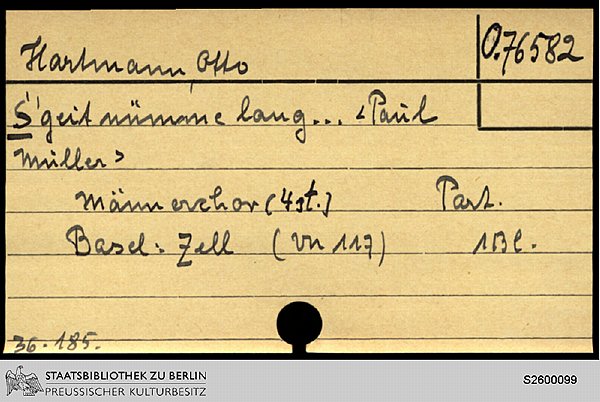 Hartmann, Otto
O.76582
S'geit nümme lang... <Paul
Müller>
Männerchor (4st.) Part.
Basel: Zell (VN 117) 1 Bl.
36.185.
STAATSBIBLIOTHEK ZU BERLIN
PREUSSISCHER KULTURBESITZ
S2600099